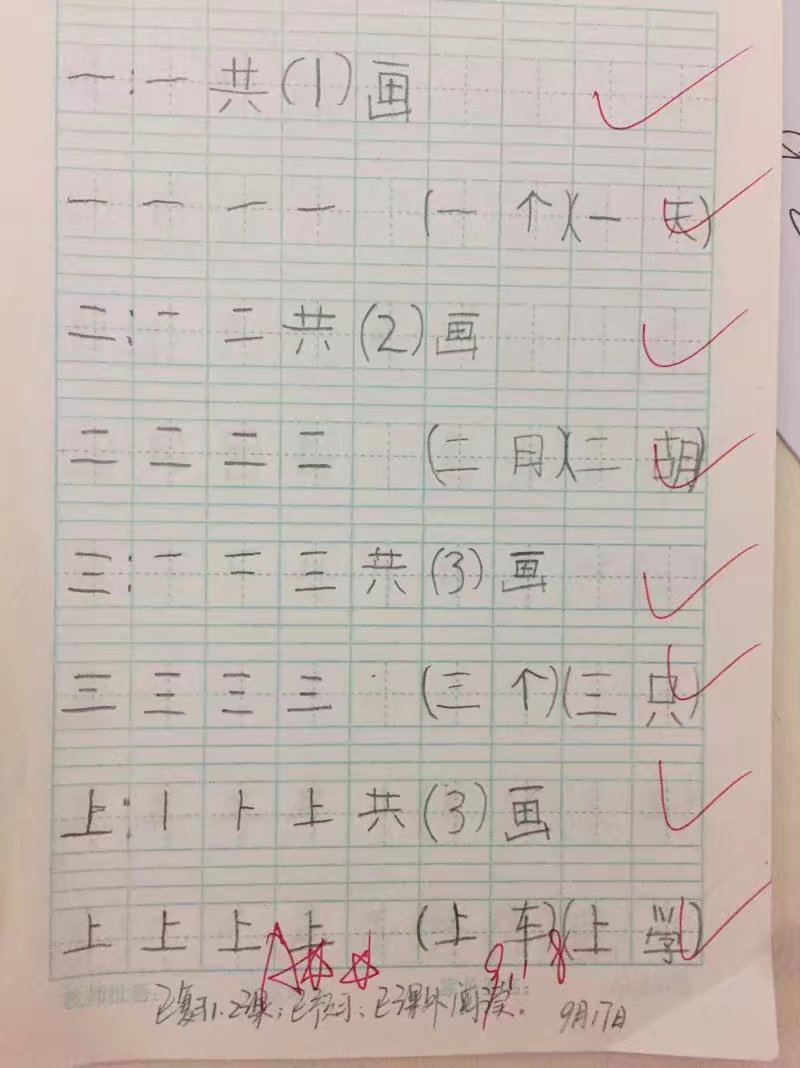 一:一共(1)画
一 一 一 一 (一个)(一天)
二:一 二 共(2)画
二 二 二 二 (二月)(二胡)
三:一 二 三 共(3)画
三 三 三 三 (三个)(三只)
上:丨 ⺊ 上 共(3)画
上 上 上 上 (上车)(上学)
A☆☆ 9.18
教师批语:
已复习1.2课;已预习;已课外阅读。 9月17日